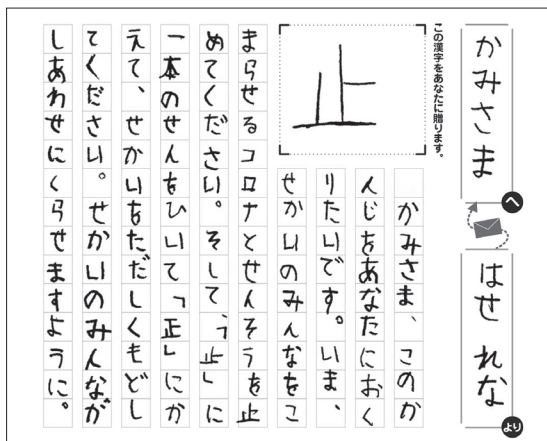 かみさま
へ
はせ れな
より
この漢字をあなたに贈ります。
止
かみさま、このか
んじをあなたにおく
りたいです。いま、
せかいのみんなをこ
まらせるコロナとせんそうを止
めてください。そして、「止」に
一本のせんをひいて「正」にか
えて、せかいをただしくもどし
てください。せかいのみんなが
しあわせにくらせますように。